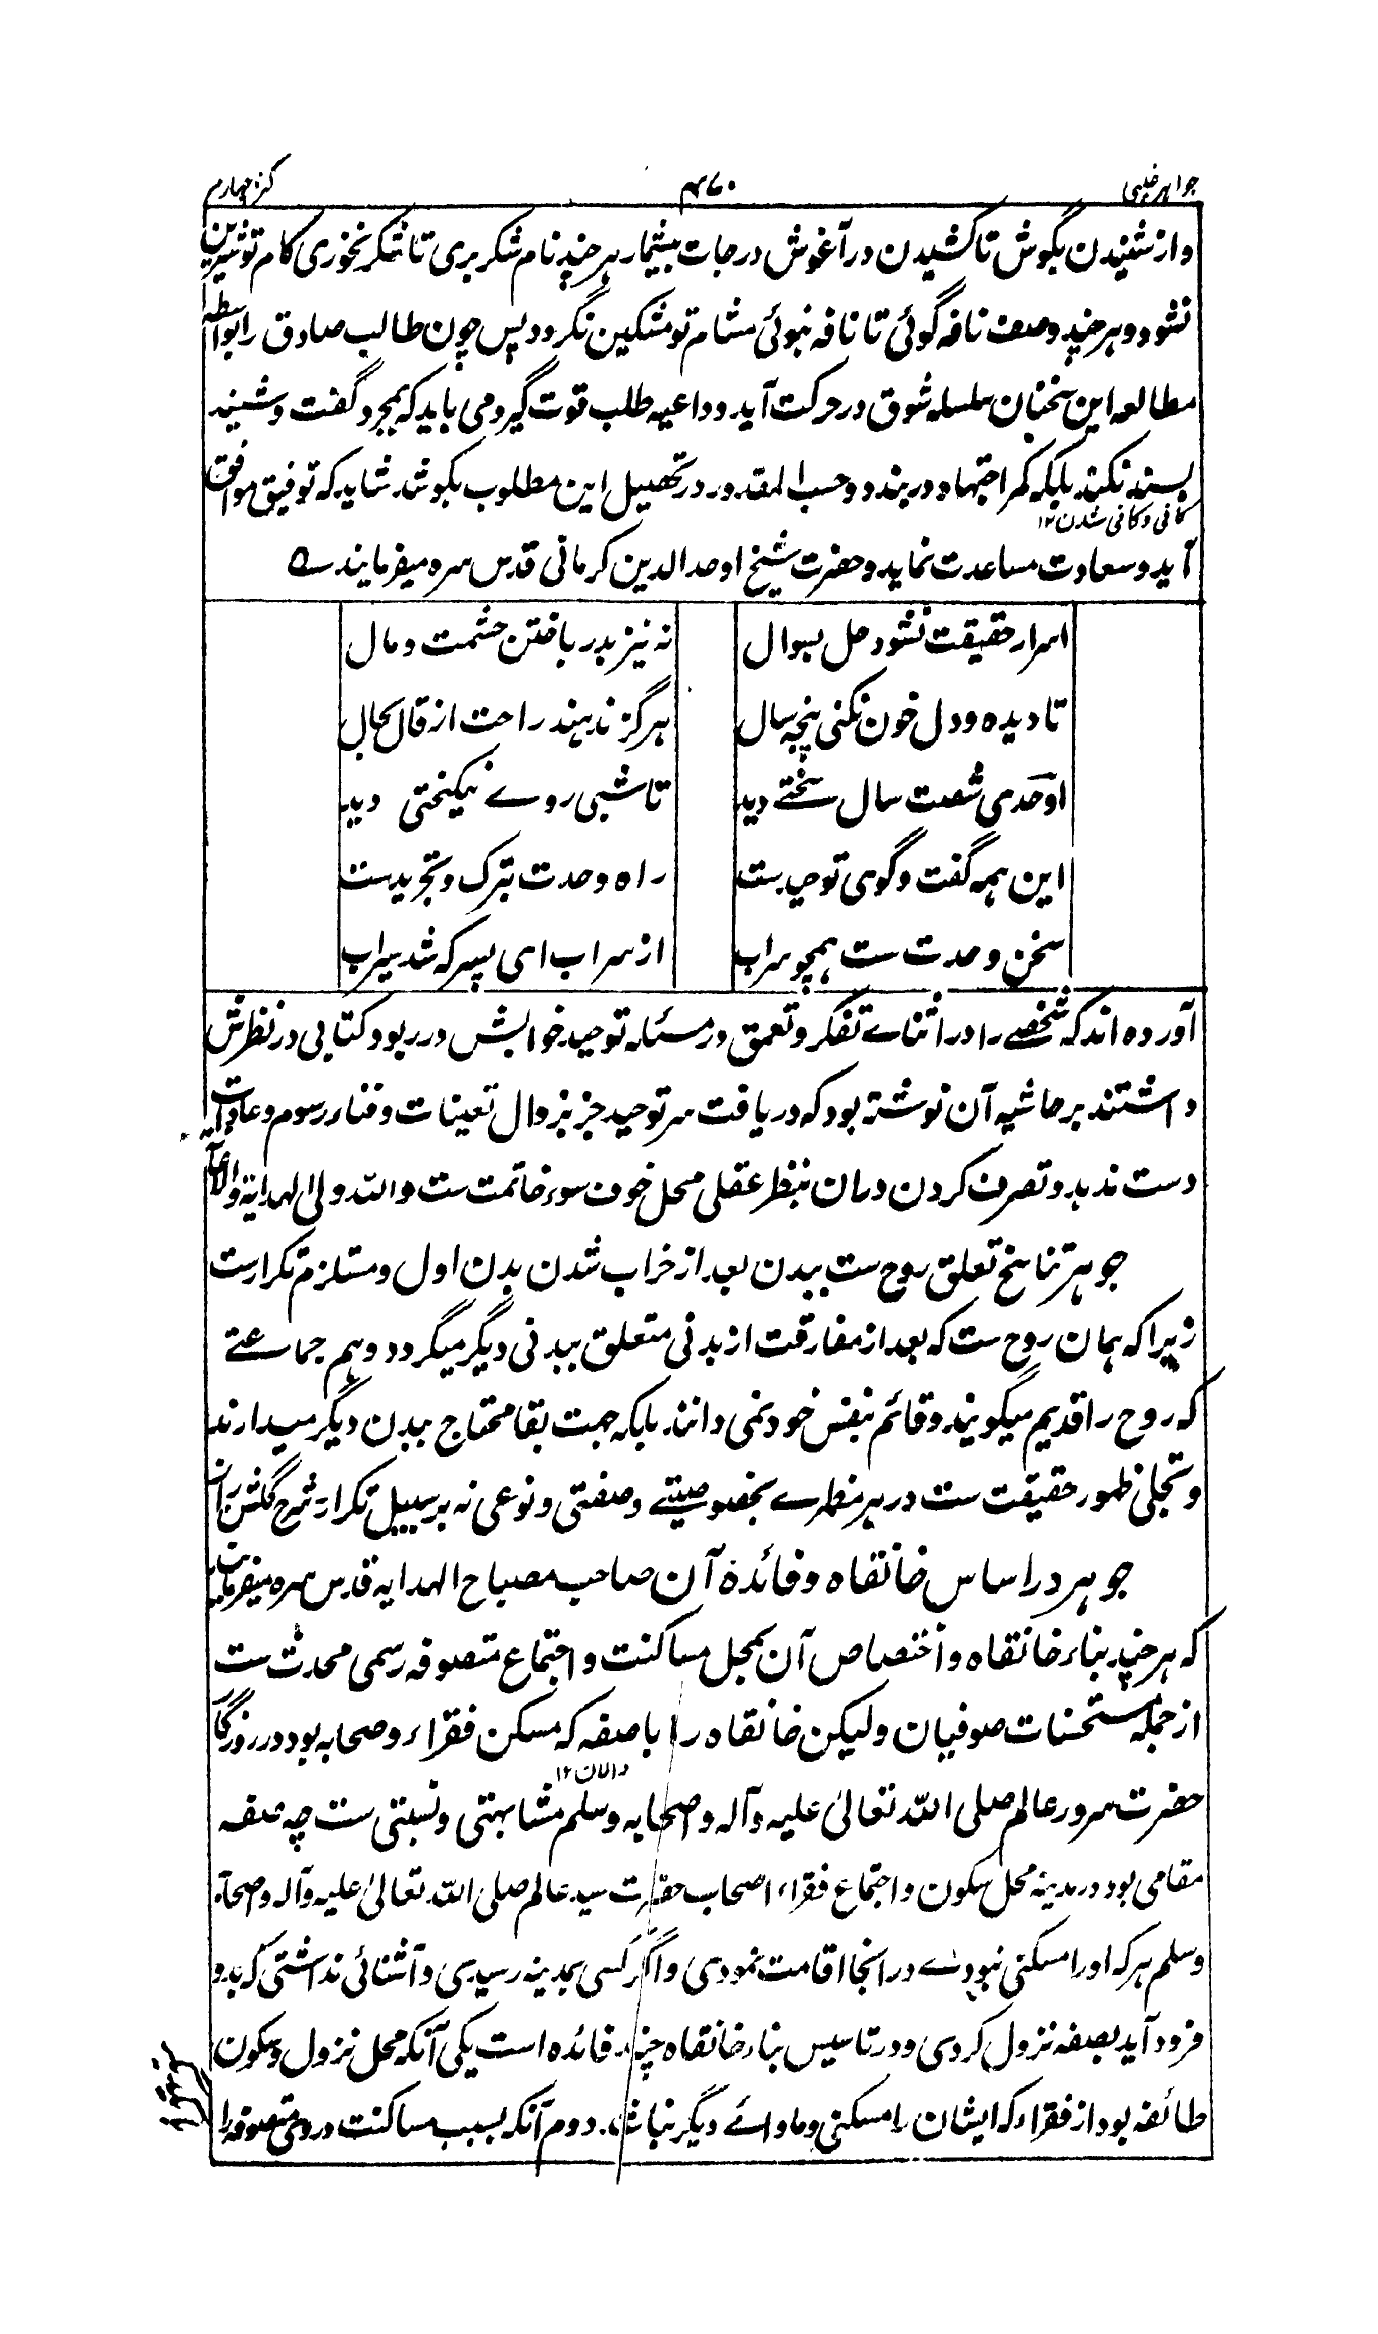 جواهر غیبی
۴۷۰
کنز چهارم
و از شنیدن بگوش تا کشیدن در آغوش درجات بیشمار هر چند نام شکر بری تا شکر نخوری کام تو شیرین
نشود و هر چند وصف نافه گوئی تا نافه نبوئی مشام تو مشکین نگردد پس چون طالب صادق را بواسطه
مطالعه این سخنان سلسله شوق در حرکت آید و داعیه طلب قوت گیرد می باید که بمجرد گفت و شنید
بسنده نکند بلکه کمر اجتهاد در بندد و حسب المقدور در تحصیل این مطلوب بکوشد شاید که توفیق موافق
کافی و کافی شدن ۱۲
آید و سعادت مساعدت نماید و حضرت شیخ اوحد الدین کرمانی قدس سره میفرمایند ے
اسرار حقیقت نشود حل بسوال نه نیز بدر باختن حشمت و مال
تا دیده و دل خون نکنی پنجه سال هرگز ندهند راحت از قال بحال
اوحدی شصت سال سختے دید تا شبی روے نیکبختی دید
این همه گفت و گوی توحیدست راه وحدت بترک و تجریدست
سخن وحدت ست همچو سراب از سراب ای پسر که شد سیراب
آورده اند که شخصے را در اثناے تفکر و تعمق در مسئله توحید خوابش در ربود و کتابی در نظرش
داشتند بر حاشیه آن نوشته بود که دریافت سر توحید جز بزوال تعینات و فناء رسوم و عادات
دست ندهد و تصرف کردن دران بنظر عقلی محل خوف سوء خاتمت ست والله ولی الهدایة
جوهر تناسخ تعلق روح ست ببدن بعد از خراب شدن بدن اول و مستلزم تکرارست
زیرا که همان روح ست که بعد از مفارقت از بدنی متعلق ببدنی دیگر میگردد و هم جماعتے
که روح را قدیم میگویند و قائم بنفس خود نمی دانند بلکه جهت بقا محتاج ببدن دیگر میدارند
و تجلی ظهور حقیقت ست در هر مظهرے بخصوصیتے و صفتی و نوعی نه بر سبیل تکرار شرح گلشن راز
جوهر در اساس خانقاه و فائدهٔ آن صاحب مصباح الهدایه قدس سره میفرماید
که هر چند بناء خانقاه و اختصاص آن بمحل مساکنت و اجتماع متصوفه رسمی محدث ست
از جمله مستحسنات صوفیان ولیکن خانقاه را با صفه که مسکن فقراء و صحابه بود در روزگار
دالان ۱۲
حضرت سرور عالم صلی الله تعالیٰ علیه وآله واصحابه وسلم مشابهتی و نسبتی ست چه صفه
مقامی بود در مدینه محل سکون و اجتماع فقراء اصحاب حضرت سید عالم صلی الله تعالیٰ علیه وآله واصحابه
وسلم هر که او را مسکنی نبودے در انجا اقامت نمودی و اگر کسی بمدینه رسیدی و آشنائی نداشتی که بدو
فرود آید بصفه نزول کردی و در تاسیس بناء خانقاه چند فائده است یکی آنکه محل نزول و سکون
طائفه بود از فقراء که ایشان را مسکنی و ماوائے دیگر نباشد دوم آنکه بسبب مساکنت دروی متصوفه را